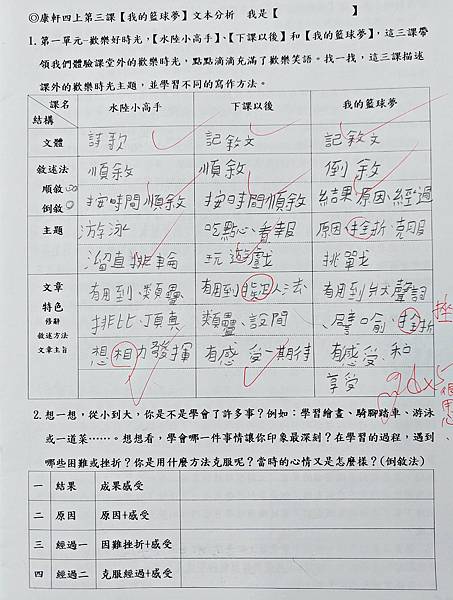 ◎康軒四上第三課【我的籃球夢】文本分析 我是【 】
1.第一單元-歡樂好時光,【水陸小高手】、【下課以後】和【我的籃球夢】,這三課帶
領我們體驗課堂外的歡樂時光,點點滴滴充滿了歡樂笑語。找一找,這三課描述
課外的歡樂時光主題,並學習不同的寫作方法。
課名 水陸小高手 下課以後 我的籃球夢
結構
文體 詩歌 記敘文 記敘文
敘述法 順敘 順敘 倒敘
順敘 按時間順敘 按時間順敘 結果、原因、經過
倒敘
主題 游泳 吃點心、看報 原因、挫折、克服
溜直排輪 玩遊戲 挑戰
文章 有用到、類疊 有用到擬人法 有用到狀聲詞
特色
修辭 排比、頂真 類疊、設問 、譬喻、挫折 挫
敘述方法
文章主旨 想相力發揮 有感受、期待 有感受、和
享受
2.想一想,從小到大,你是不是學會了許多事?例如:學習繪畫、騎腳踏車、游泳
或一道菜……。想想看,學會哪一件事情讓你印象最深刻?在學習的過程,遇到
哪些困難或挫折?你是用什麼方法克服呢?當時的心情又是怎麼樣?(倒敘法)
一 結果 成果感受
二 原因 原因+感受
三 經過一 困難挫折+感受
四 經過二 克服經過+感受